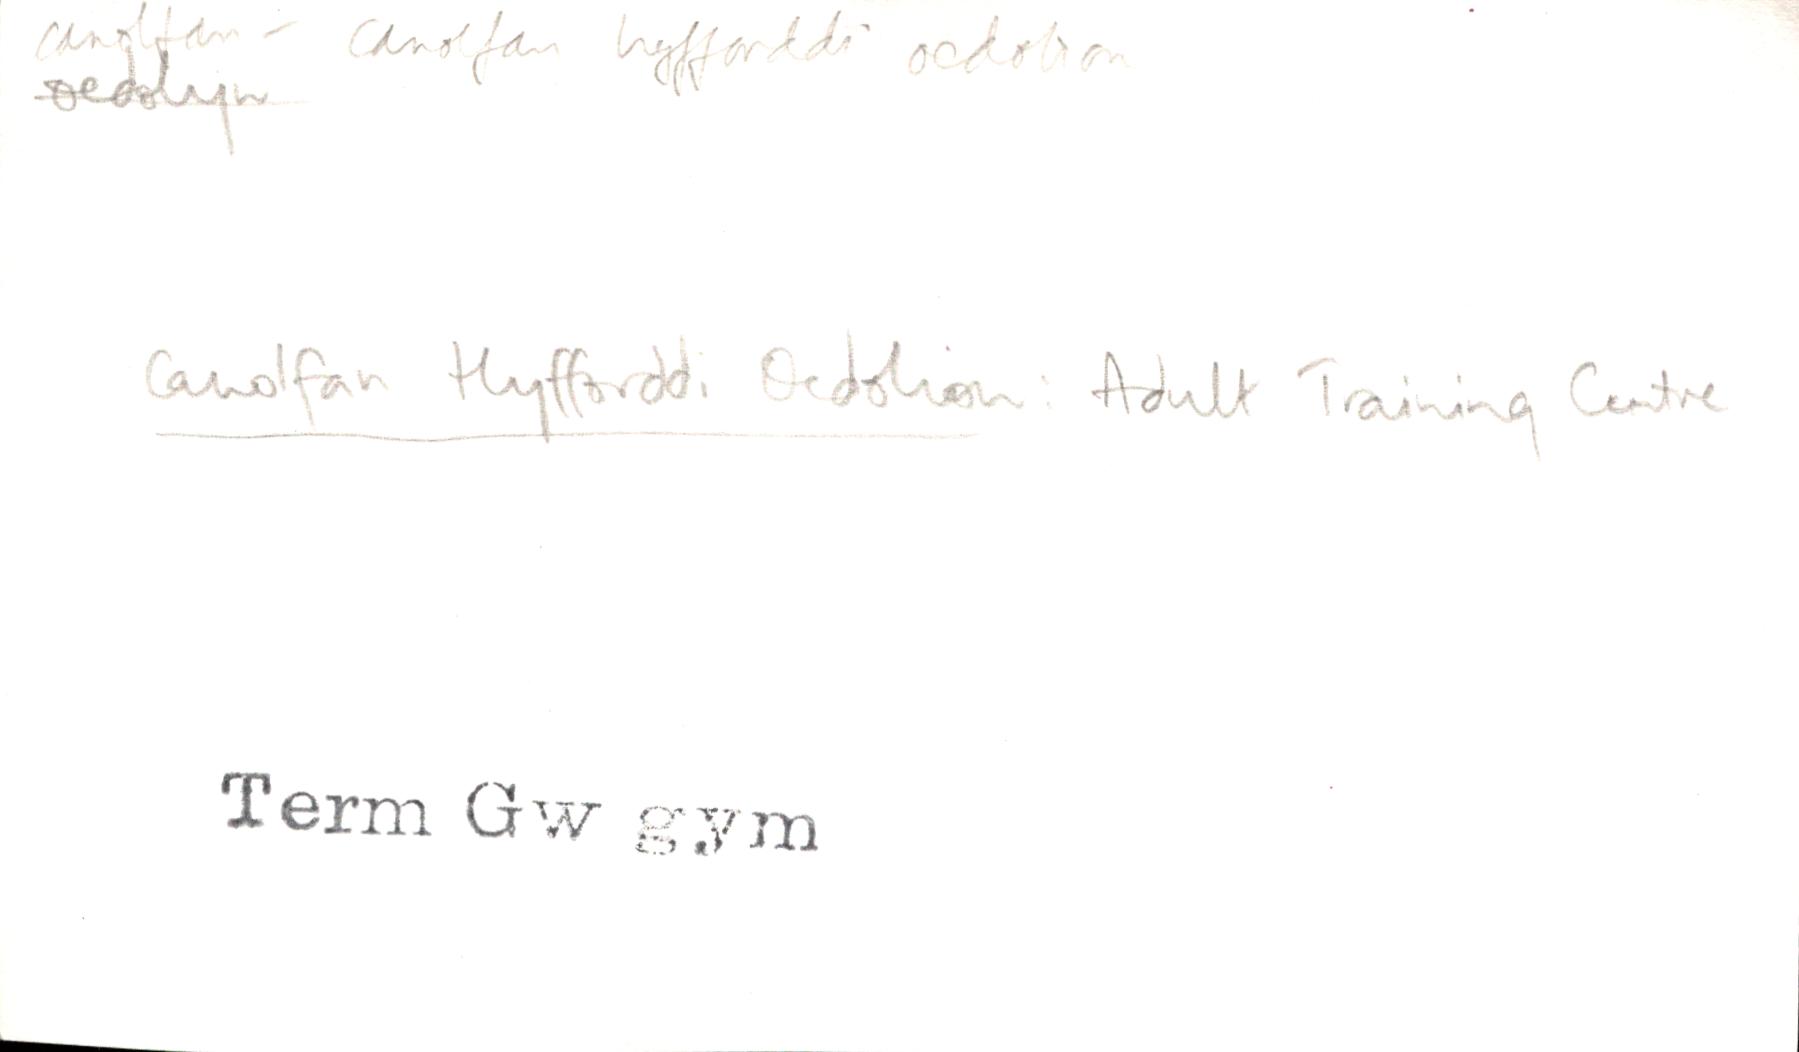 canolfan - canolfan hyfforddi oedolion
oedolyn
Canolfan Hyfforddi Oedolion : Adult Training Centre
Term Gw gym